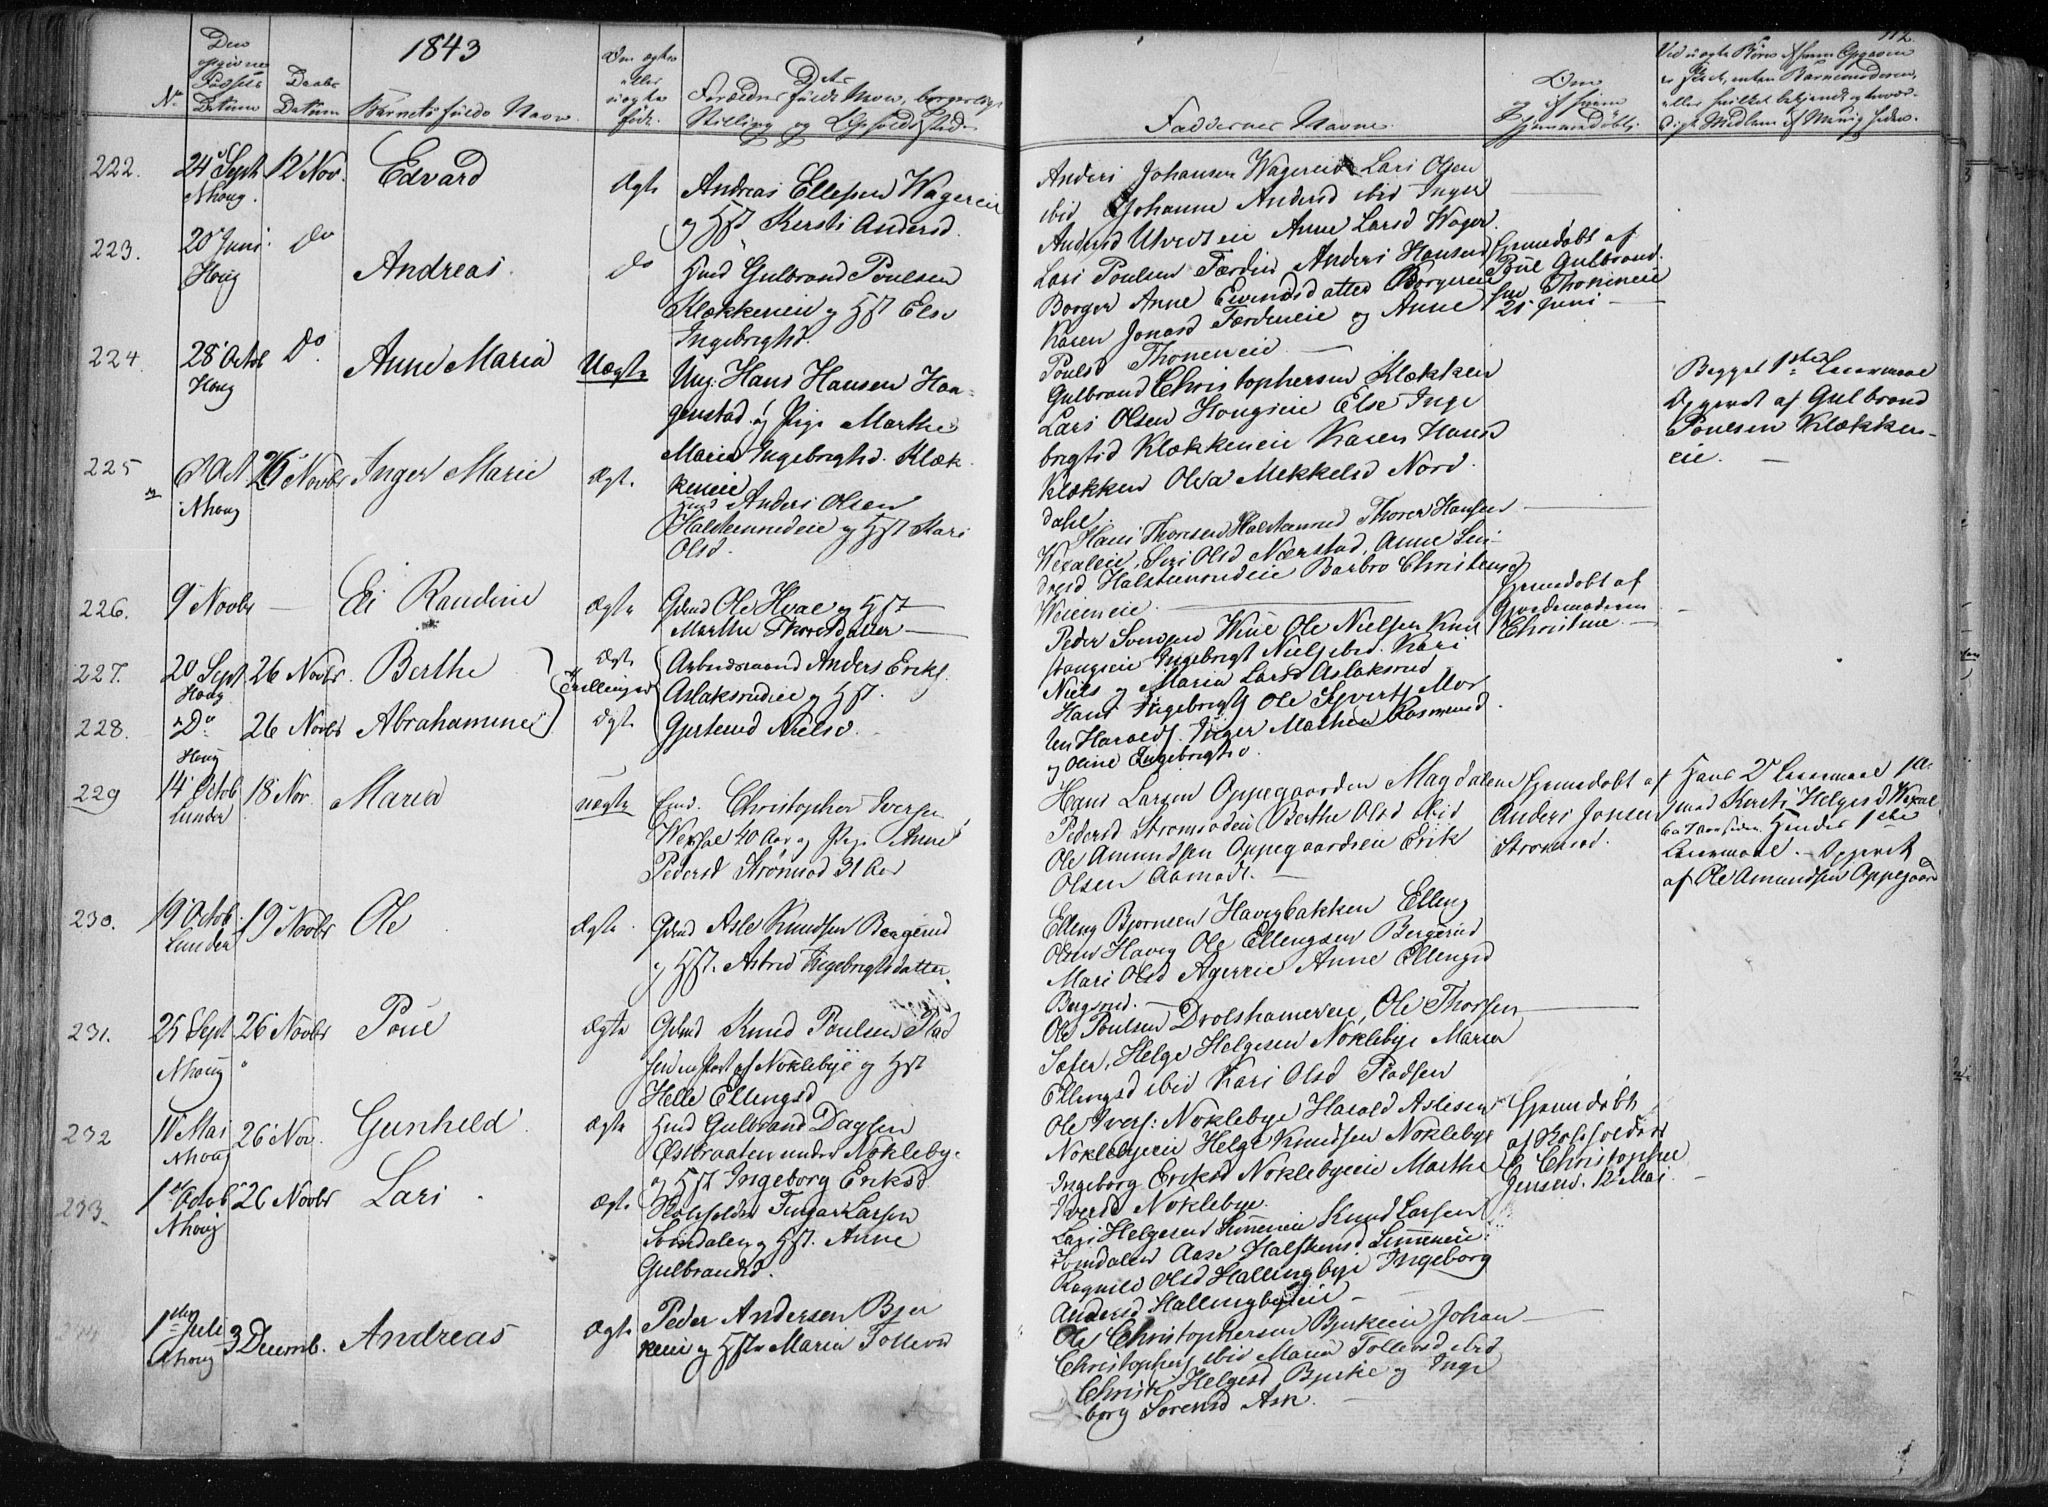 1843
112.
Den opgivne Fødsels Datum
Daabs Datum
Barnets fulde Navn
Om ægte eller uægte født.
Forældres fulde Navn, borgerlige Stilling og Opholdssted
Faddernes Navne
Om og af hvem hjemmedøbt
222. 24 Sept NHoug. 12 Nov. Edvard Ægte
Andreas Ellefsen Wagereie
og Hst Kersti Andersd.
Anders Johansen Wagereie Lars Olsen
ibid Johanne Andersd ibid Inger
Andersd Anne Larsd Wager
223. 20 Juni Houg Do Andreas. Do
Huusmd Gulbrand Poulsen
Klækkeneie og Hst Else
Ingebrigtsd.
Lars Poulsen Færden Anders Hansen
Borger Anne Eivindsdatter Borgereie
Karen Jonasd Færdeneie og Anne
Poulsd Thoneneie
Hjemmedøbt af
Poul Gulbrand
sen Thoneneie
21 Juni
224. 28 Octob Houg Do Anne Maria Uægte
Ung. Hans Hansen Haa-
genstad og Pige Marthe
Maria Ingebrigtsd. Klæk-
keneie
Gulbrand Christophersen Klækken
Lars Olsen Hougseie Else Inge
brigtsd Klækkeneie Karen Hansd
Klækken Olea Mekkelsd Nord
dahl
Begges 1ste Leiermaal
Opgivet af Gulbrand
Poulsen Klækken-
eie.
225 Oct NHoug 26 Novbr Inger Marie Ægt.
Huusmd Anders Olsen
Halstenrudeie og Hst Kari
Olsd.
Hans Thoresen Halstenrud Thorer Hansen
Wexaleie, Siri Olsd Nærstad, Anne
Halstenrudeie Barbro Christensd
226. 9 Novbr — Ei Randine Ægte
Gdmd Ole Hval og Hst
Marthe Thoresdatter
Peder Svensen Ole Nielsen
Ingebrigt Nielsen Kari
Niels og Maria Larsd Aslaksrud
Hjemmedøbt af
Gjordemoderen
Christine.
227. 20 Sept Houg 26 Novbr Berthe Ægte
Tvillinger
Arbeidsmand Anders Eriks.
Aslaksrudeie og Hst.
Gjertrud Nielsd.
228. Do Houg 26 Novbr Abrahammine Ægte
Hans Ingebrigts Ole Syverts Mor
ten Haralds. Inger Mathea Rosmund
og Oline Ingebrigtsd.
229 14 Octob Lunder 18 Nov. Maria uægte
Enmd. Christopher Iversen
Wexhal 40 Aar og Pige Anne
Pedersd Strømsod 31 Aar
Hans Larsen Oppegaarden Magdalene
Pedersd Strømsodeie Berthe Olsd ibid
Ole Amundsen Oppegaardseie Erik
Olsen Aamodt.
Hjemmedøbt af
Anders Jonsen
Strømsod.
Hans 2t Leiermaal 1ste
med Kersti Helgesd Wexal
6 a 7 Aar siden. Hendes 1ste
Leiermaal. Opgivet
af Ole Amundsen Oppegaard
230. 19 Octob. Lunder 19 Novbr Ole Ægte.
Gdmd Asle Knudsen Bergerud
og Hst. Astrid Ingebrigtsdatter
Elling Bjørnsen Havigbakken Elling
Olsen Havig Ole Ellingsen Bergerud
Mari Olsd Agerreie Anne Ellingsd
Bergsrud.
231. 25 Sept NHoug 26 Novbr Poul Ægte
Gdmd Knud Poulsen Plad
sen en Part af Noklebye og Hst
Helle Ellingsd
Ole Poulsen Drolshammereie, Ole Thorsen
Helge Helgesen Noklebye Maria
Ellingsd ibid Kari Olsd Pladsen
232 11 Mai NHoug 26 Nov. Gunhild Ægte
Huusmd Gulbrand Dagsen
Østbraaten under Nokleby.
og Hst Ingeborg Eriksd
Ole Ivers: Noklebye Harald Aslesen
Noklebyeie Helge Knudsen Noklebye
Ingeborg Eriksd Noklebyeie Marthe
Iversd Noklebye.
Hjemmedøbt
af Skoleholder
Christopher
Jensen. 12 Mai
233. 1 Octob NHoug 26 Novbr Lars Ægte
Skoleholder Fingar Larsen
Somdalen og Hst. Anne
Gulbrandsd.
Lars Helgesen Simeneie Knud Larsen
Somdalen Aase Halstensd Simeneie
Ragnild Olsd Hallingbye Ingeborg
Andersd Hallingbyeie
234 1ste Juli NHoug 3 Decemb. Andreas Ægte
Peder Andersen Bjer
keeie og Hst Maria Tollevsd
Ole Christophersen Bjerkeeie Johan
Christophers ibid Maria Tollevsd ibid
Christi Helgesd Bjerke og Inge
borg Sorensd Ask.